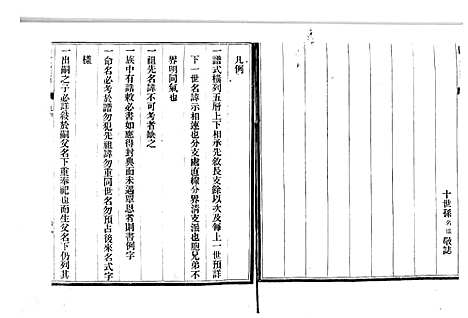 十世孫名儒敬誌
凡例
一譜式橫列五層上下相承先敘長支餘以次及每上一世預詳
下一世名諱示相連也分支處直標分界清支派也胞兄弟不
界明同氣也
一祖先名諱不可考者缺之
一族中有誥敕必書如應得封典而未遇覃恩者則書例字
一命名必考於譜勿犯先祖諱勿重同世名勿預占後來名式字
樣
一出嗣之子必註於嗣父名下重奉祀也而生父名下仍列其